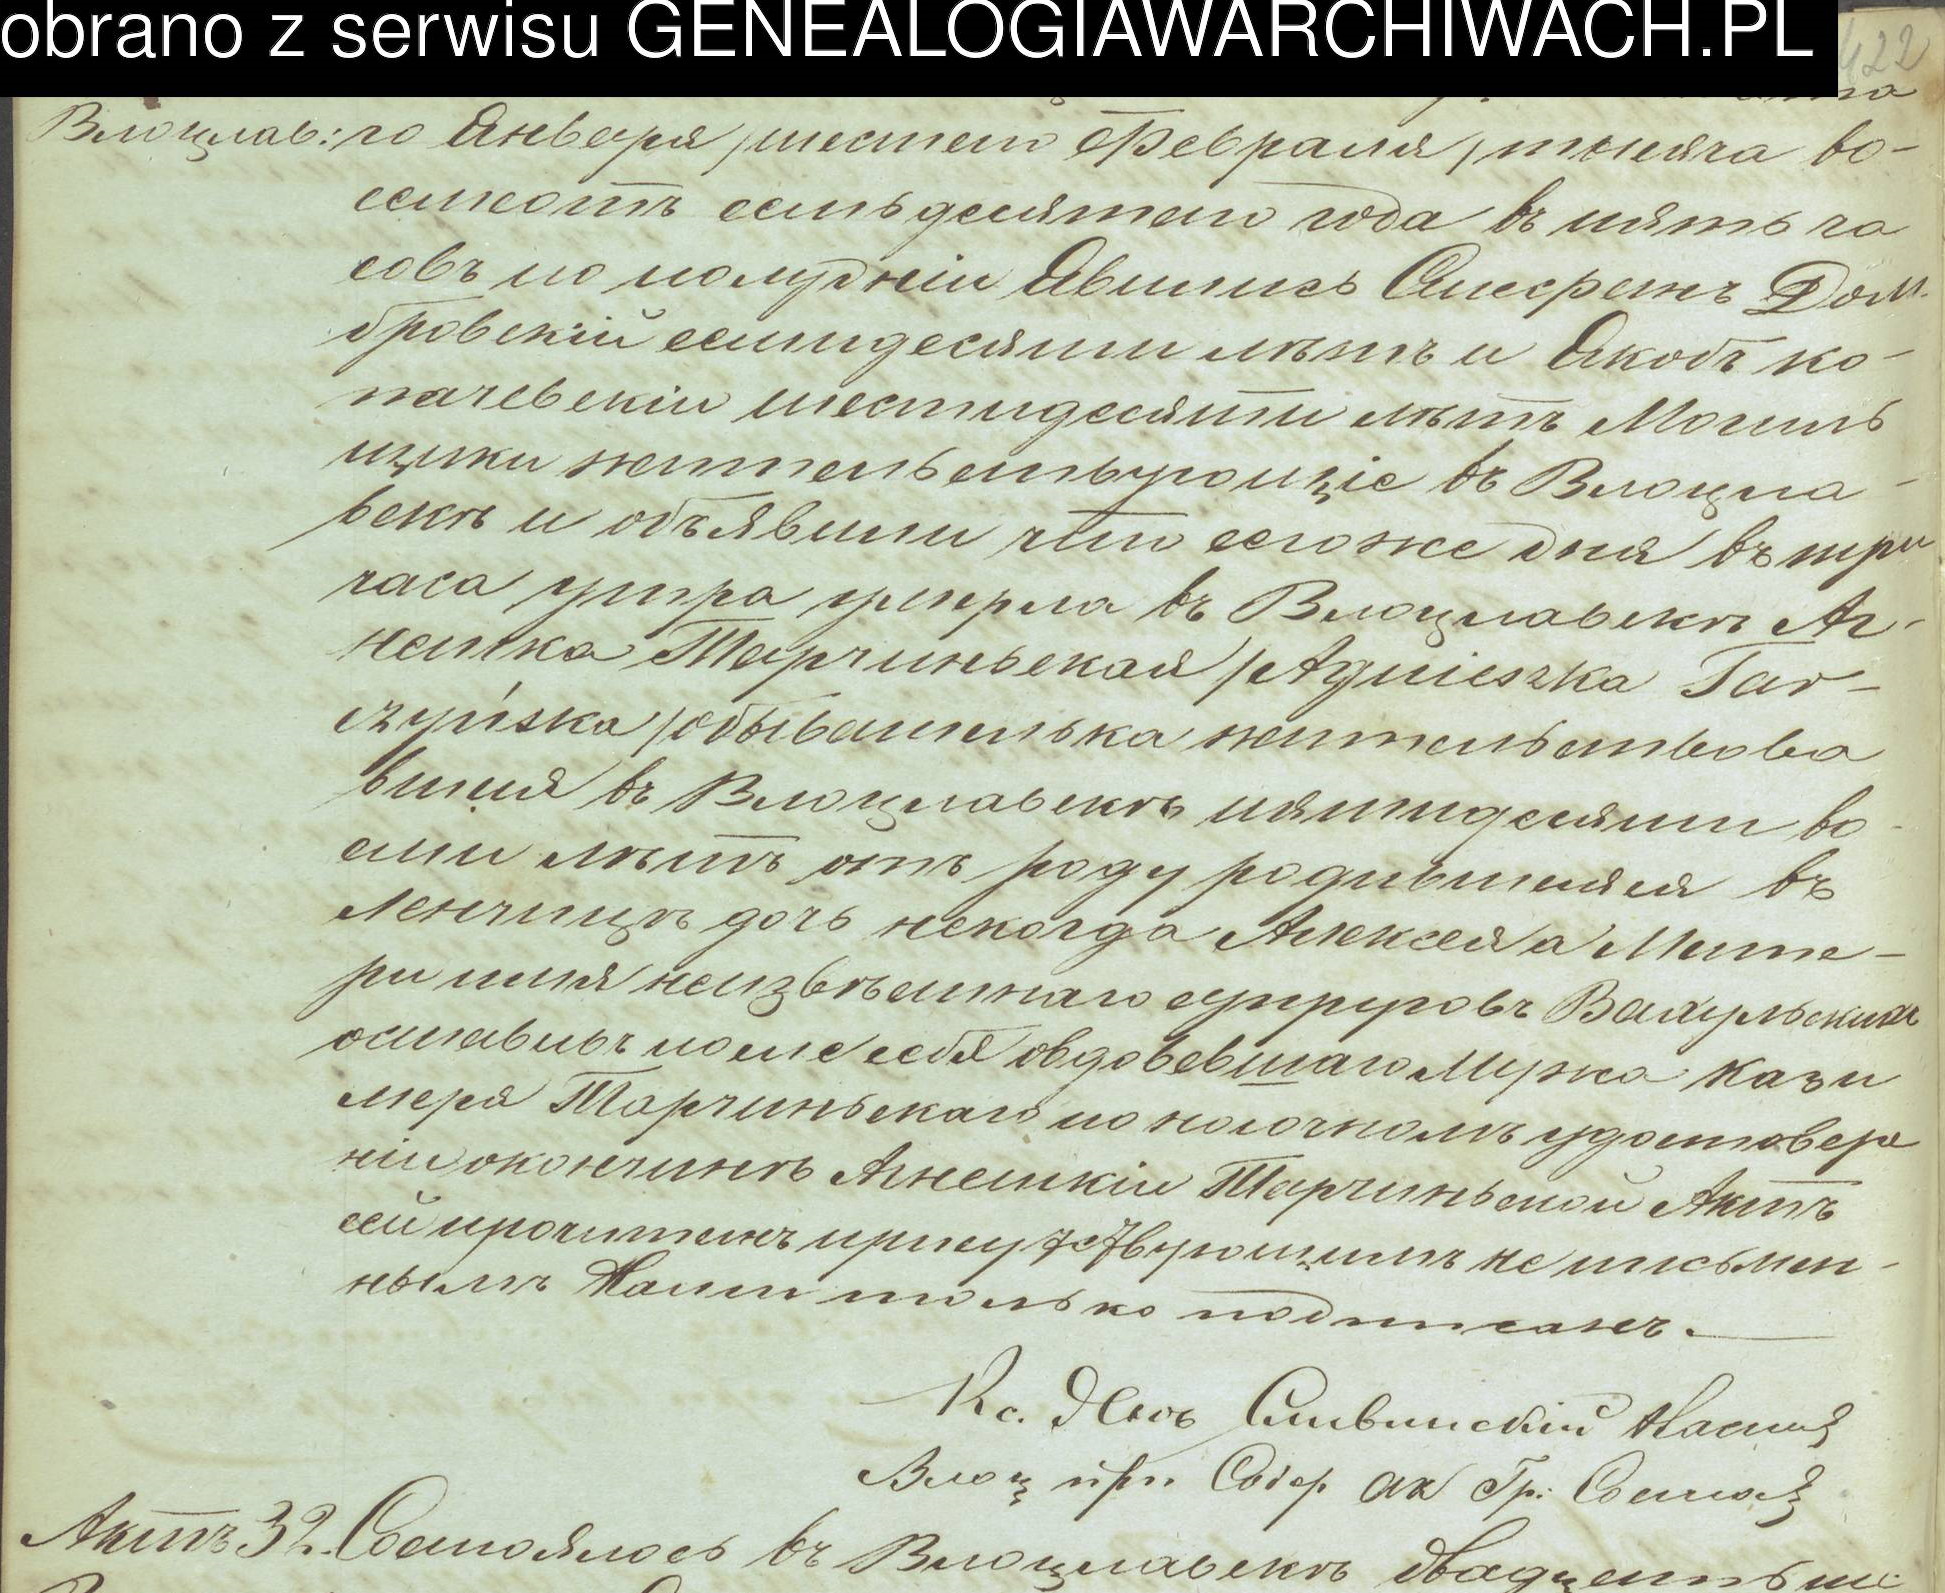 obrano z serwisu GENEALOGIAWARCHIWACH.PL
422
Влоцлав: го Января /шестаго Февраля/ тысяча во-
семсотъ семьдесятаго года въ пять ча
совъ по полудніи Явились Онсфранъ Дом-
бровскій семидесяти лѣтъ и Якобъ Ко-
пачевскіи шестидесяти лѣтъ Могиль
щики жительствующіе въ Влоцла-
векѣ и объявили что сегоже дня въ три
часа утра умерла въ Влоцлавекѣ Аг-
нешка Тарчиньская /Agnieszka Tar-
czyńska/ обывателька жительствова
вшая въ Влоцлавекѣ пятидесяти во-
сми лѣтъ отъ роду родившаяся въ
Ленчицѣ дочь некогда Алексея а Мате-
ри имя неизвѣстнаго супруговъ Вахульскихъ
оставивъ после себя овдовевшаго Мужа Кази
мера Тарчиньскаго по
ніи окончинѣ Агнешкіи Тарчиньской Актъ
сей прочитанъ присутствующимъ не письмен-
нымъ Нами только подписанъ.
Кс. Янъ Сливинскій
Влоц при. Содер ак Гр: Состоя
Актъ 32. Состоялось въ Влоцлавекѣ двадцать ше